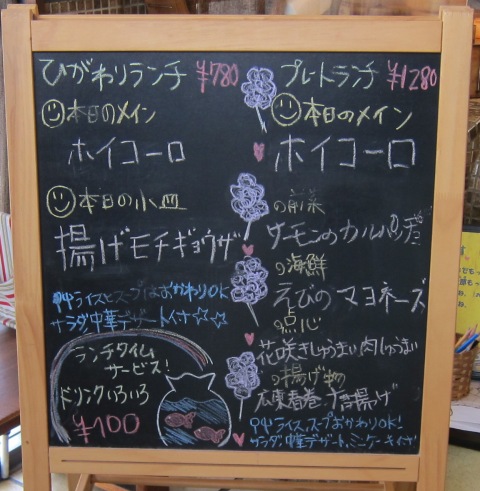 ひがわりランチ ¥780
本日のメイン
ホイコーロ
本日の小皿
揚げモチギョウザ
ライスとスープはおかわりOK
サラダ中華デザート付☆☆☆
ランチタイム
サービス!
ドリンクいろいろ
¥100
プレートランチ ¥1280
本日のメイン
ホイコーロ
の前菜
サーモンのカルパッチョ
の海鮮
えびのマヨネーズ
の点心
花咲きしゅうまい肉しゅうまい
の揚げ物
広東春巻
ライス、スープおかわりOK!
サラダ、中華デザート、ミニケーキ付!